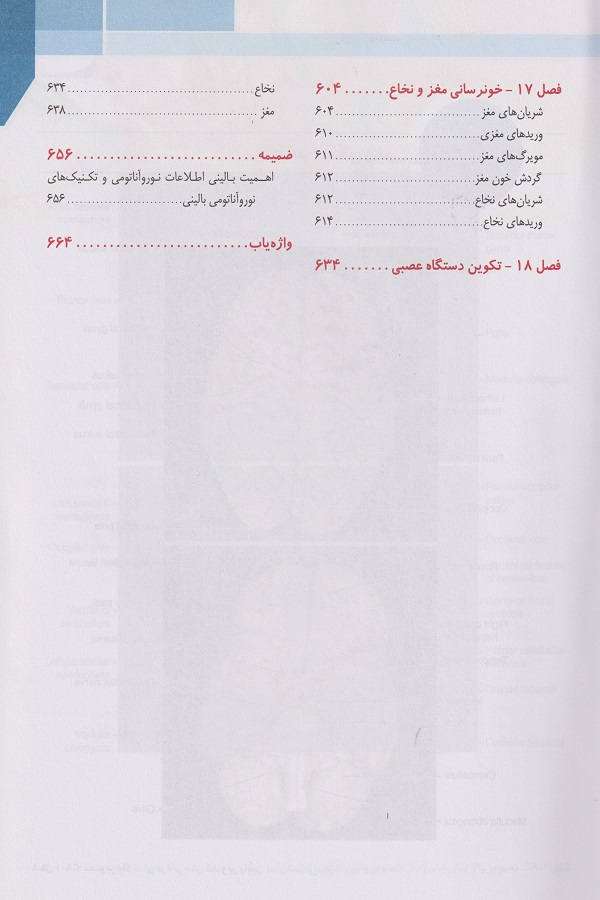 فصل ۱۷ - خونرسانی مغز و نخاع....... ۶۰۴
شریان‌های مغز.......................... ۶۰۴
وریدهای مغزی.......................... ۶۱۰
مویرگ‌های مغز.......................... ۶۱۱
گردش خون مغز.......................... ۶۱۲
شریان‌های نخاع.......................... ۶۱۲
وریدهای نخاع.......................... ۶۱۴
فصل ۱۸ - تکوین دستگاه عصبی....... ۶۳۴
نخاع.......................... ۶۳۴
مغز.......................... ۶۳۸
ضمیمه.......................... ۶۵۶
اهـمیت بـالینی اطـلاعات نـوروآناتومی و تکـنیک‌های
نوروآناتومی بالینی.......................... ۶۵۶
واژه‌یاب.......................... ۶۶۴